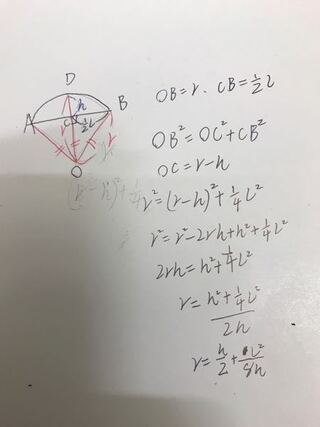 D
h
A
C
½l
B
r
r
O
OB=r. CB=½l
OB²=OC²+CB²
OC=r-h
r²=(r-h)²+¼l²
r²=r²-2rh+h²+¼l²
2rh=h²+¼l²
r=(h²+¼l²)/2h
r=h/2+l²/8h